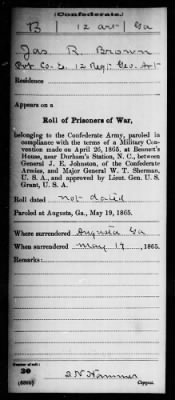 (Confederate.)
B 12 art Ga
Jas R. Brown
Pvt Co. B. 12 Regt. Geo. Art
Residence
Appears on a
Roll of Prisoners of War,
belonging to the Confederate Army, paroled in
compliance with the terms of a Military Con-
vention made on April 26, 1865, at Bennett's
House, near Durham's Station, N. C., between
General J. E. Johnston, of the Confederate
Armies, and Major General W. T. Sherman,
U. S. A., and approved by Lieut. Gen. U. S.
Grant, U. S. A.
Roll dated not dated
Paroled at Augusta, Ga., May 19, 1865.
Where surrendered Augusta Ga
When surrendered May 19, 1865.
Remarks:
Number of roll:
30
Copyist.